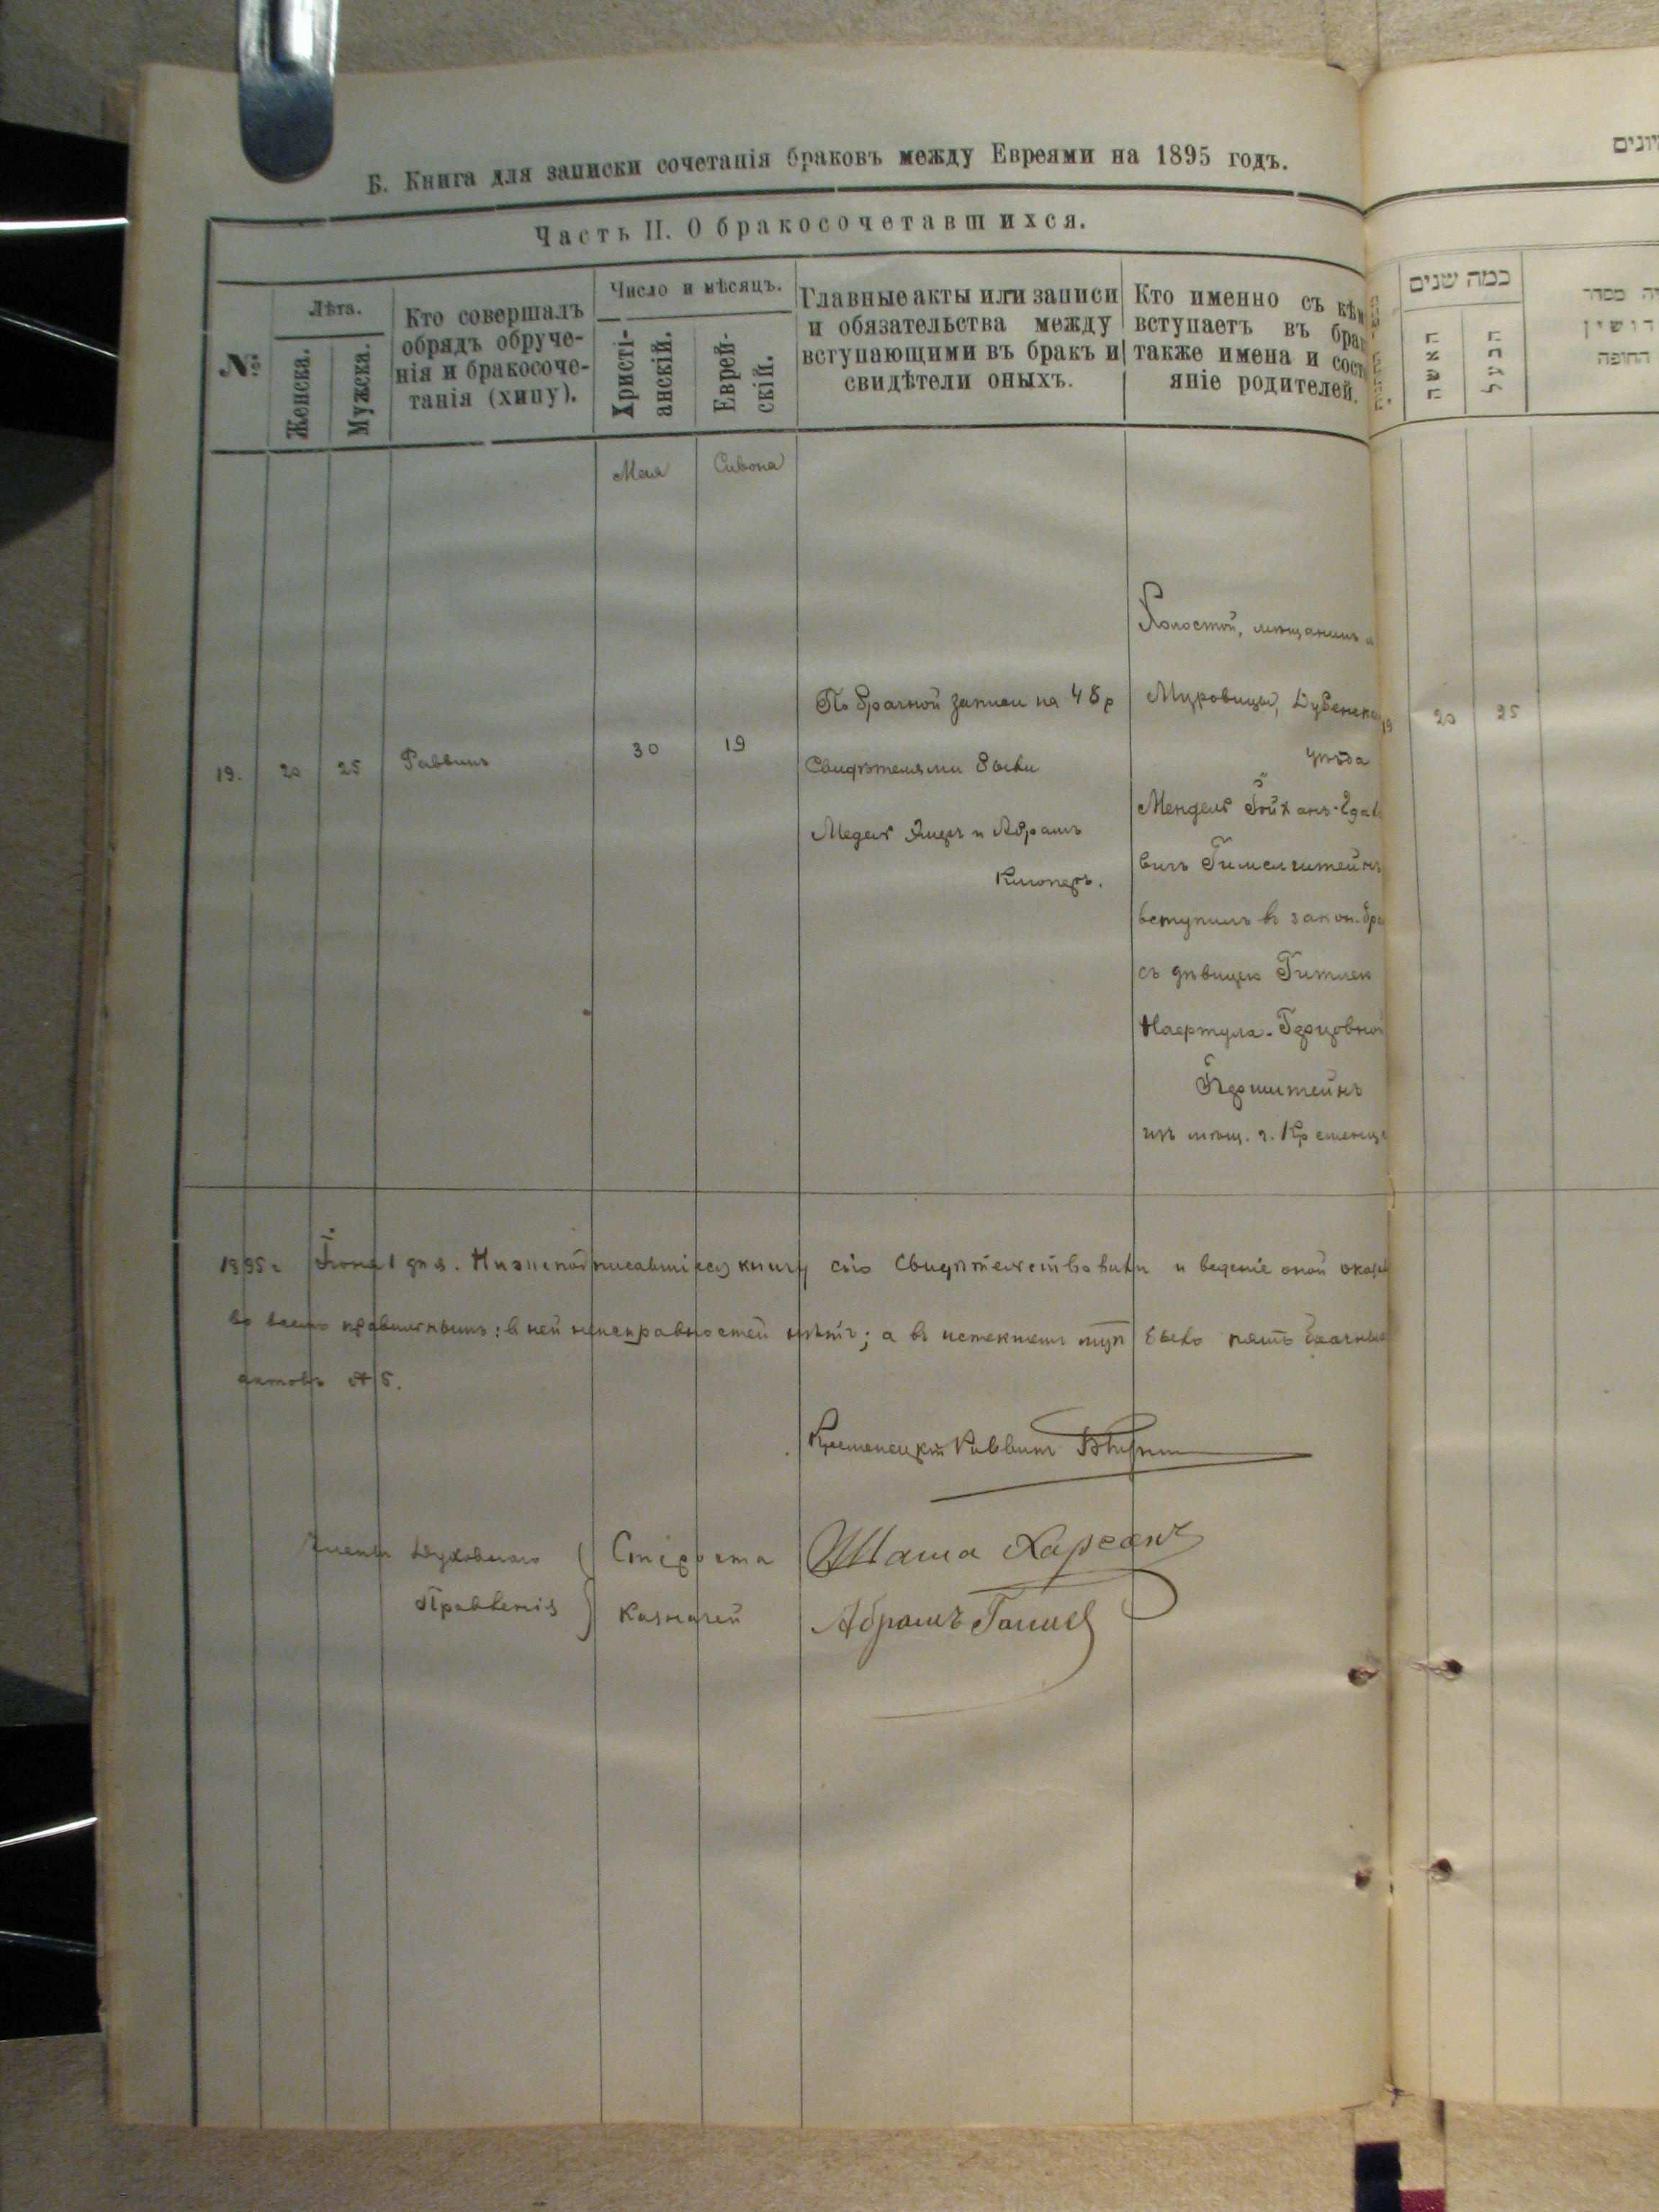 Б. Книга для записки сочетанія браковъ между Евреями на 1895 годъ.
Часть II. О бракосочетавшихся.
№
Лѣта.
Женска.
Мужска.
Кто совершалъ
обрядъ обруче-
нія и бракосоче-
танія (хипу).
Число и мѣсяцъ.
Христі-
анскій.
Еврей-
скій.
Главные акты или записи
и обязательства между
вступающими въ бракъ и
свидѣтели оныхъ.
Кто именно съ кѣм
вступаетъ въ брак
также имена и сост
яніе родителей.
Мая
Сивона
19.
20
25
Раввинъ
30
19
По брачной записи на 48 р
Свидѣтелями были
и Абрамъ
Клюперъ.
Холостой, мѣщанинъ м
Муровицы, Дубенска
уѣзда
Мендель
вичъ
вступилъ въ закон. бра
съ дѣвицею Гитлею
Нафтула-Герцовной
изъ мѣщ. г. Кременца
1895 г Іюня 1 дня. Нижеподписавшіеся книгу сію свидѣтельствовали и веденіе оной оказ
во всемъ правильнымъ: въ ней неисправностей нѣтъ; а въ истекшемъ было пять брачных
актовъ № 5.
Кременецкій Раввинъ
Члены Духовнаго
Правленія
Староста
Казначей
Абрамъ
כמה שנים
האשה
הבעל
מסדר
החופה
19
20
25